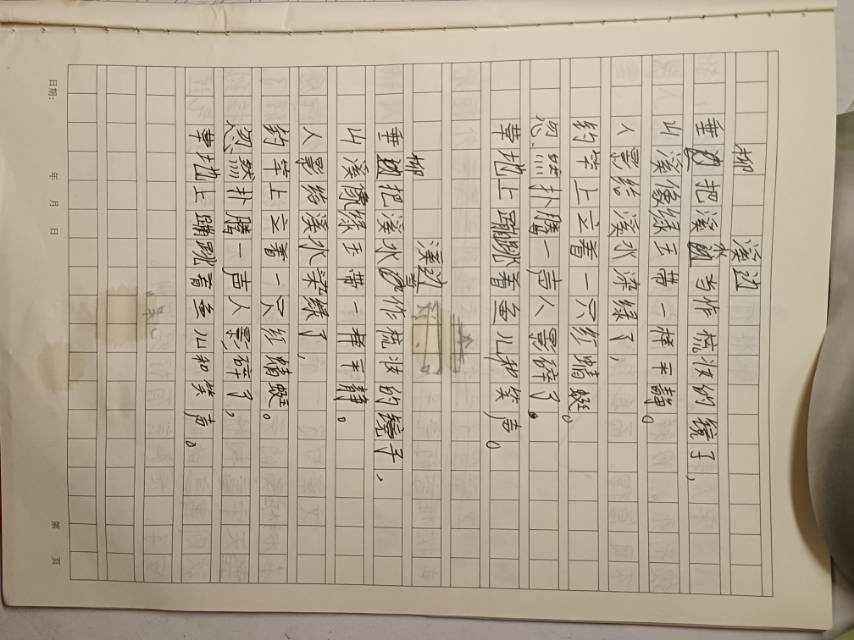 溪边
垂柳把溪水当作梳妆的镜子,
山溪像绿玉带一样平静。
人影给溪水染绿了,
钓竿上立着一只红蜻蜓。
忽然扑腾一声人影碎了。
草地上蹦跳着鱼儿和笑声。
溪边
垂柳把溪水当作梳妆的镜子,
山溪像绿玉带一样平静。
人影给溪水染绿了,
钓竿上立着一只红蜻蜓。
忽然扑腾一声人影碎了,
草地上蹦跳着鱼儿和笑声。
日期: 年 月 日 第 页